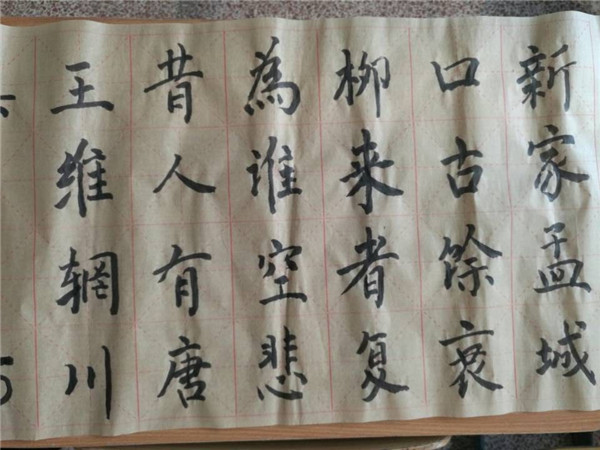 新家孟城
口古馀衰
柳来者复
為谁空悲
昔人有唐
王维辋川